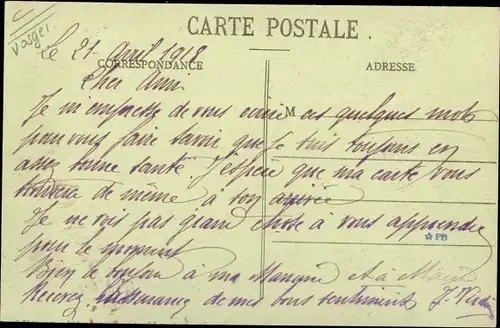 Vosges
CARTE POSTALE.
Le 21 avril 1918
CORRESPONDANCE
ADRESSE
Cher Ami
M
Je m'empresse de vous écrire ces quelques mots
pour vous faire savoir que je suis toujours en
assez bonne santé J'espère que ma carte vous
trouvera de même à son arrivée
Je ne vois pas grand chose à vous apprendre
pour le moment
PB
Bien le bonjour à ma et à
Recevez de mes bons sentiments J.